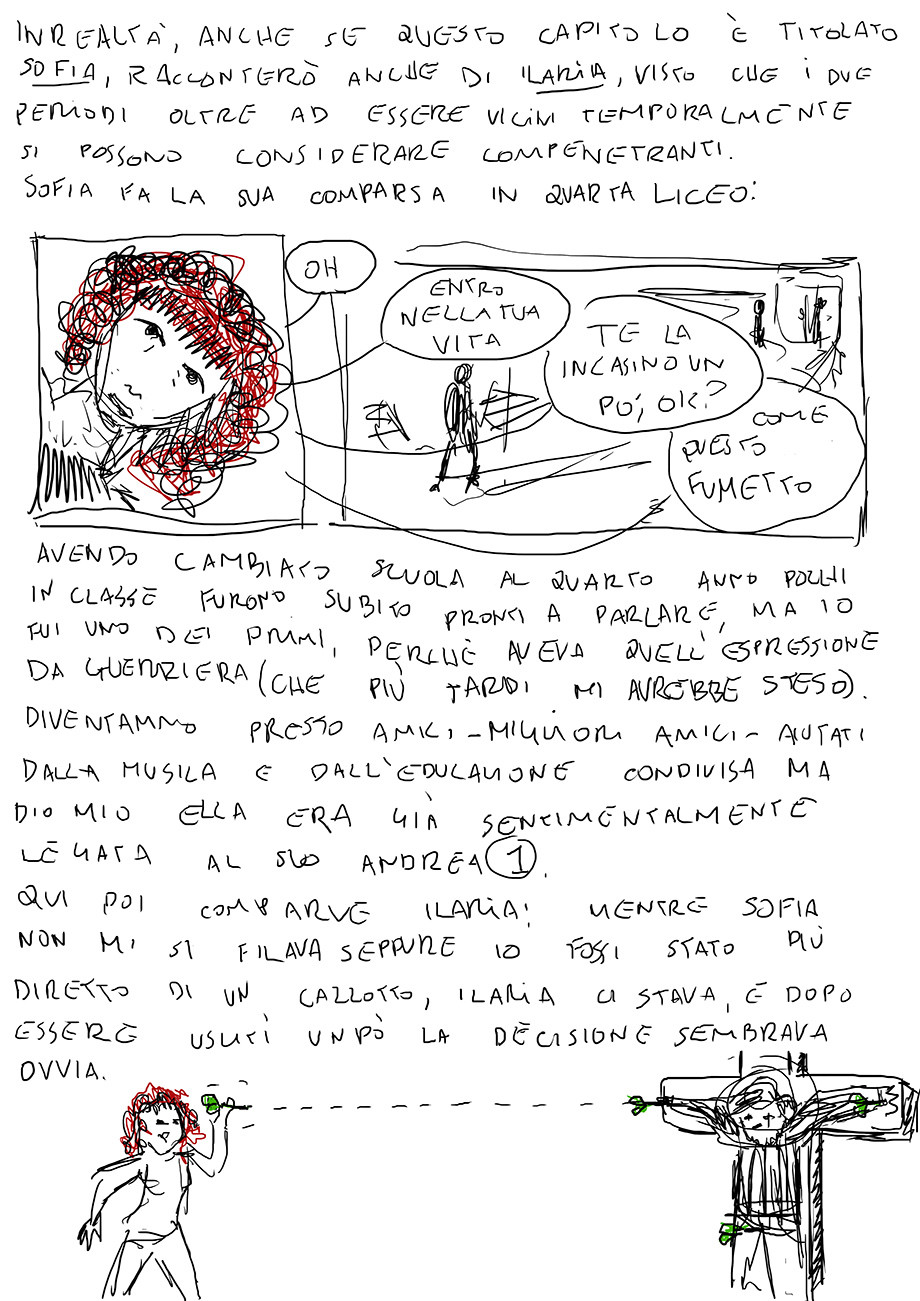 INREALTÀ, ANCHE SE QUESTO CAPITOLO È TITOLATO
SOFIA, RACCONTERÒ ANCHE DI ILARIA, VISTO CHE I DUE
PERIODI OLTRE AD ESSERE VICINI TEMPORALMENTE
SI POSSONO CONSIDERARE COMPENETRANTI.
SOFIA FA LA SUA COMPARSA IN QUARTA LICEO:
OH
ENTRO
NELLA TUA
VITA
TE LA
INCASINO UN
PO', OK?
COME
QUESTO
FUMETTO
AVENDO CAMBIATO SCUOLA AL QUARTO ANNO POCHI
IN CLASSE FURONO SUBITO PRONTI A PARLARE, MA IO
FUI UNO DEI PRIMI, PERCHÈ AVEVA QUELL'ESPRESSIONE
DA GUERRIERA (CHE PIÙ TARDI MI AVREBBE STESO).
DIVENTAMMO PRESTO AMICI - MIGLIORI AMICI - AIUTATI
DALLA MUSICA E DALL'EDUCAZIONE CONDIVISA MA
DIO MIO ELLA ERA GIÀ SENTIMENTALMENTE
LEGATA AL SUO ANDREA 1.
QUI POI COMPARVE ILARIA: MENTRE SOFIA
NON MI SI FILAVA SEPPURE IO FOSSI STATO PIÙ
DIRETTO DI UN CAZZOTTO, ILARIA CI STAVA, E DOPO
ESSERE USCITI UN PÒ LA DECISIONE SEMBRAVA
OVVIA.